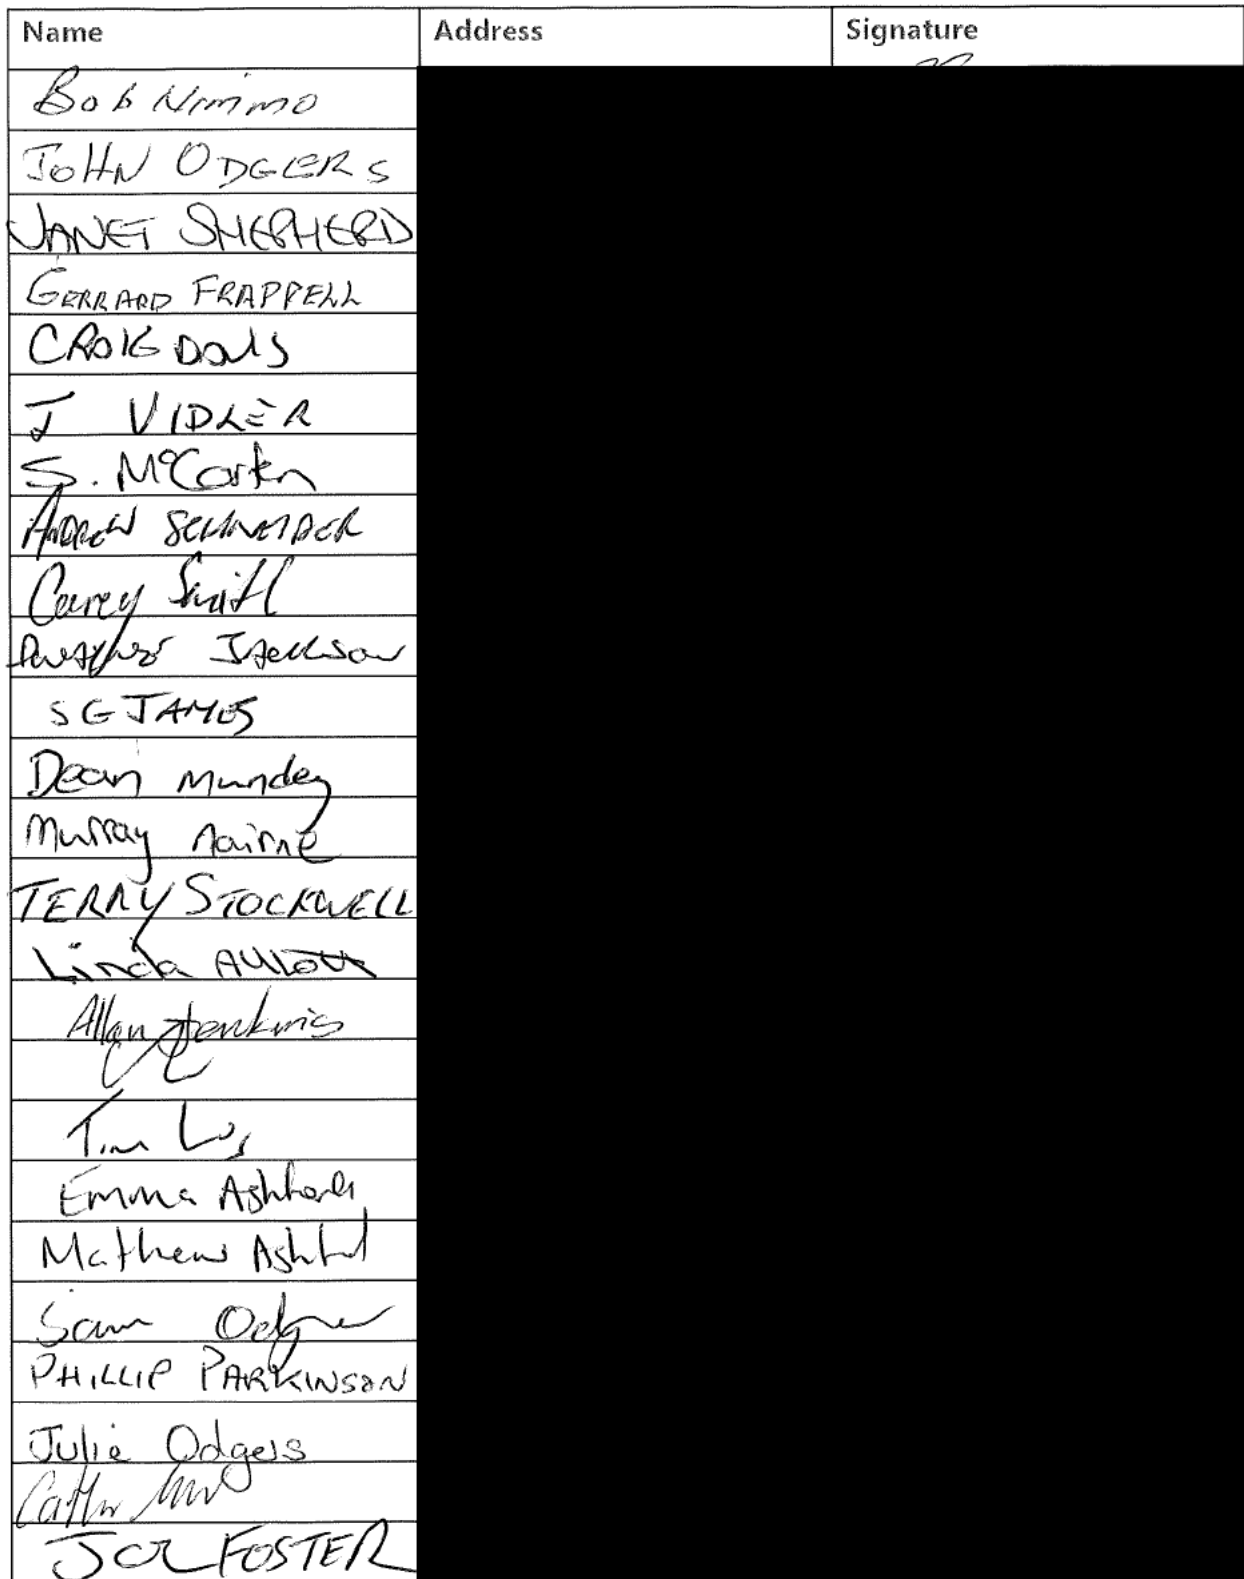 Name Address Signature
Bob Nimmo
JOHN ODGERS
JANET SHEPHERD
GERRARD FRAPPELL
CRAIG DAVIS
J VIDLER
S. McCarten
ANDREW SCHNEIDER
Carey Smith
Jackson
SG JAMES
Dean Mundey
Murray Nairne
TERRY STOCKWELL
Linda
Allan Jenkins
Tim
Emma
Mathew
Sam
PHILLIP PARKINSON
Julie Odgers
FOSTER